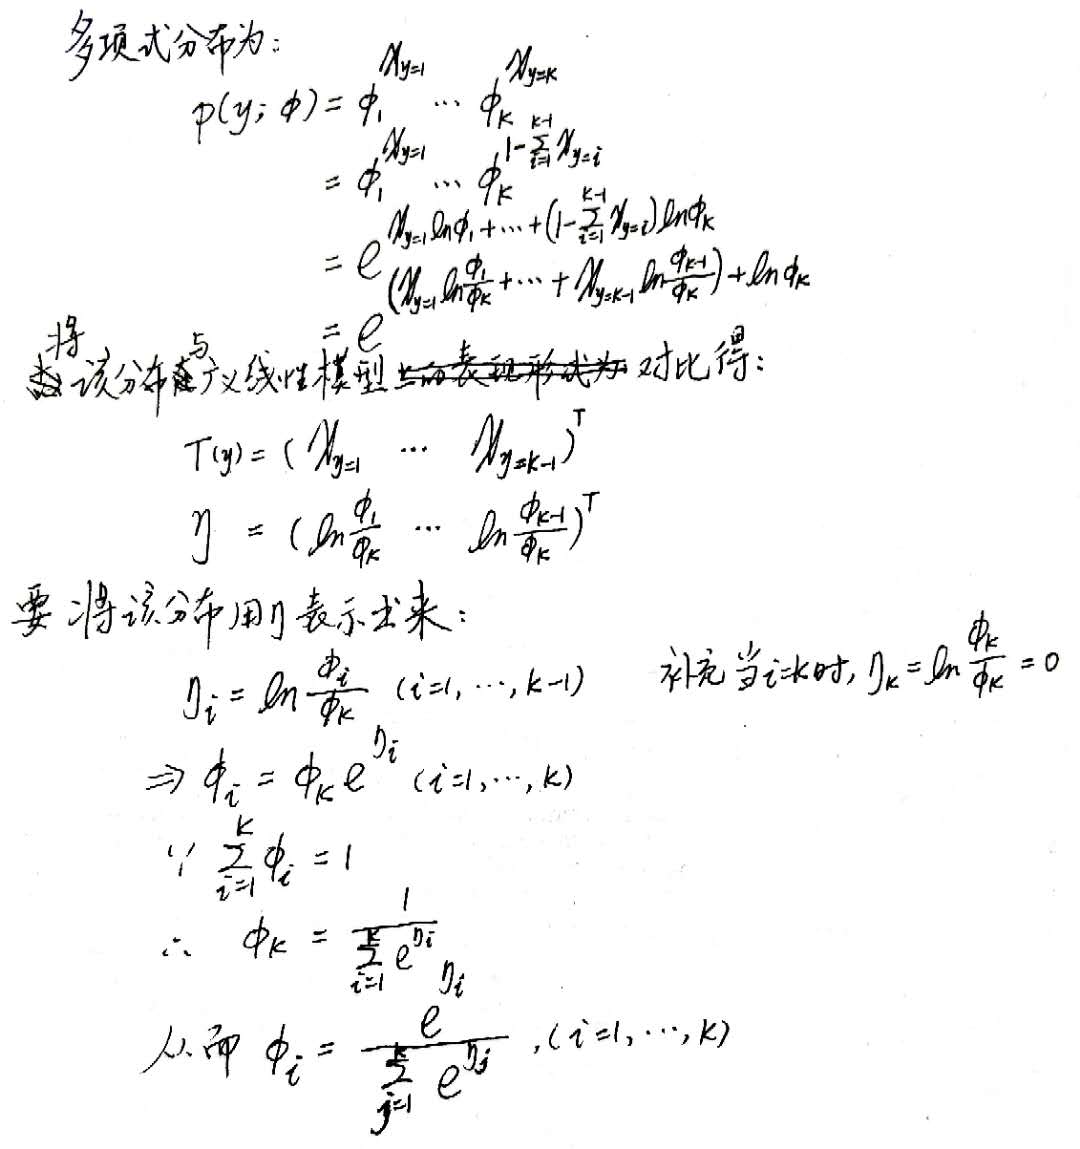 多项式分布为:
p(y; φ) = φ₁^{χ_{y=1}} ⋯ φ_K^{χ_{y=K}}
= φ₁^{χ_{y=1}} ⋯ φ_K^{1-∑_{i=1}^{K-1} χ_{y=i}}
= e^{χ_{y=1} ln φ₁ + ⋯ + (1-∑_{i=1}^{K-1} χ_{y=i}) ln φ_K}
= e^{(χ_{y=1} ln φ₁/φ_K + ⋯ + χ_{y=K-1} ln φ_{K-1}/φ_K) + ln φ_K}
将该分布与广义线性模型对比得:
T(y) = (χ_{y=1} ⋯ χ_{y=K-1})^T
η = (ln φ₁/φ_K ⋯ ln φ_{K-1}/φ_K)^T
要将该分布用η表示出来:
η_i = ln φ_i/φ_K (i=1, ⋯, K-1) 补充当i=K时, η_K = ln φ_K/φ_K = 0
⇒ φ_i = φ_K e^{η_i} (i=1, ⋯, K)
∵ ∑_{i=1}^{K} φ_i = 1
∴ φ_K = 1/∑_{i=1}^{K} e^{η_i}
从而 φ_i = e^{η_i}/∑_{j=1}^{K} e^{η_j} , (i=1, ⋯, K)